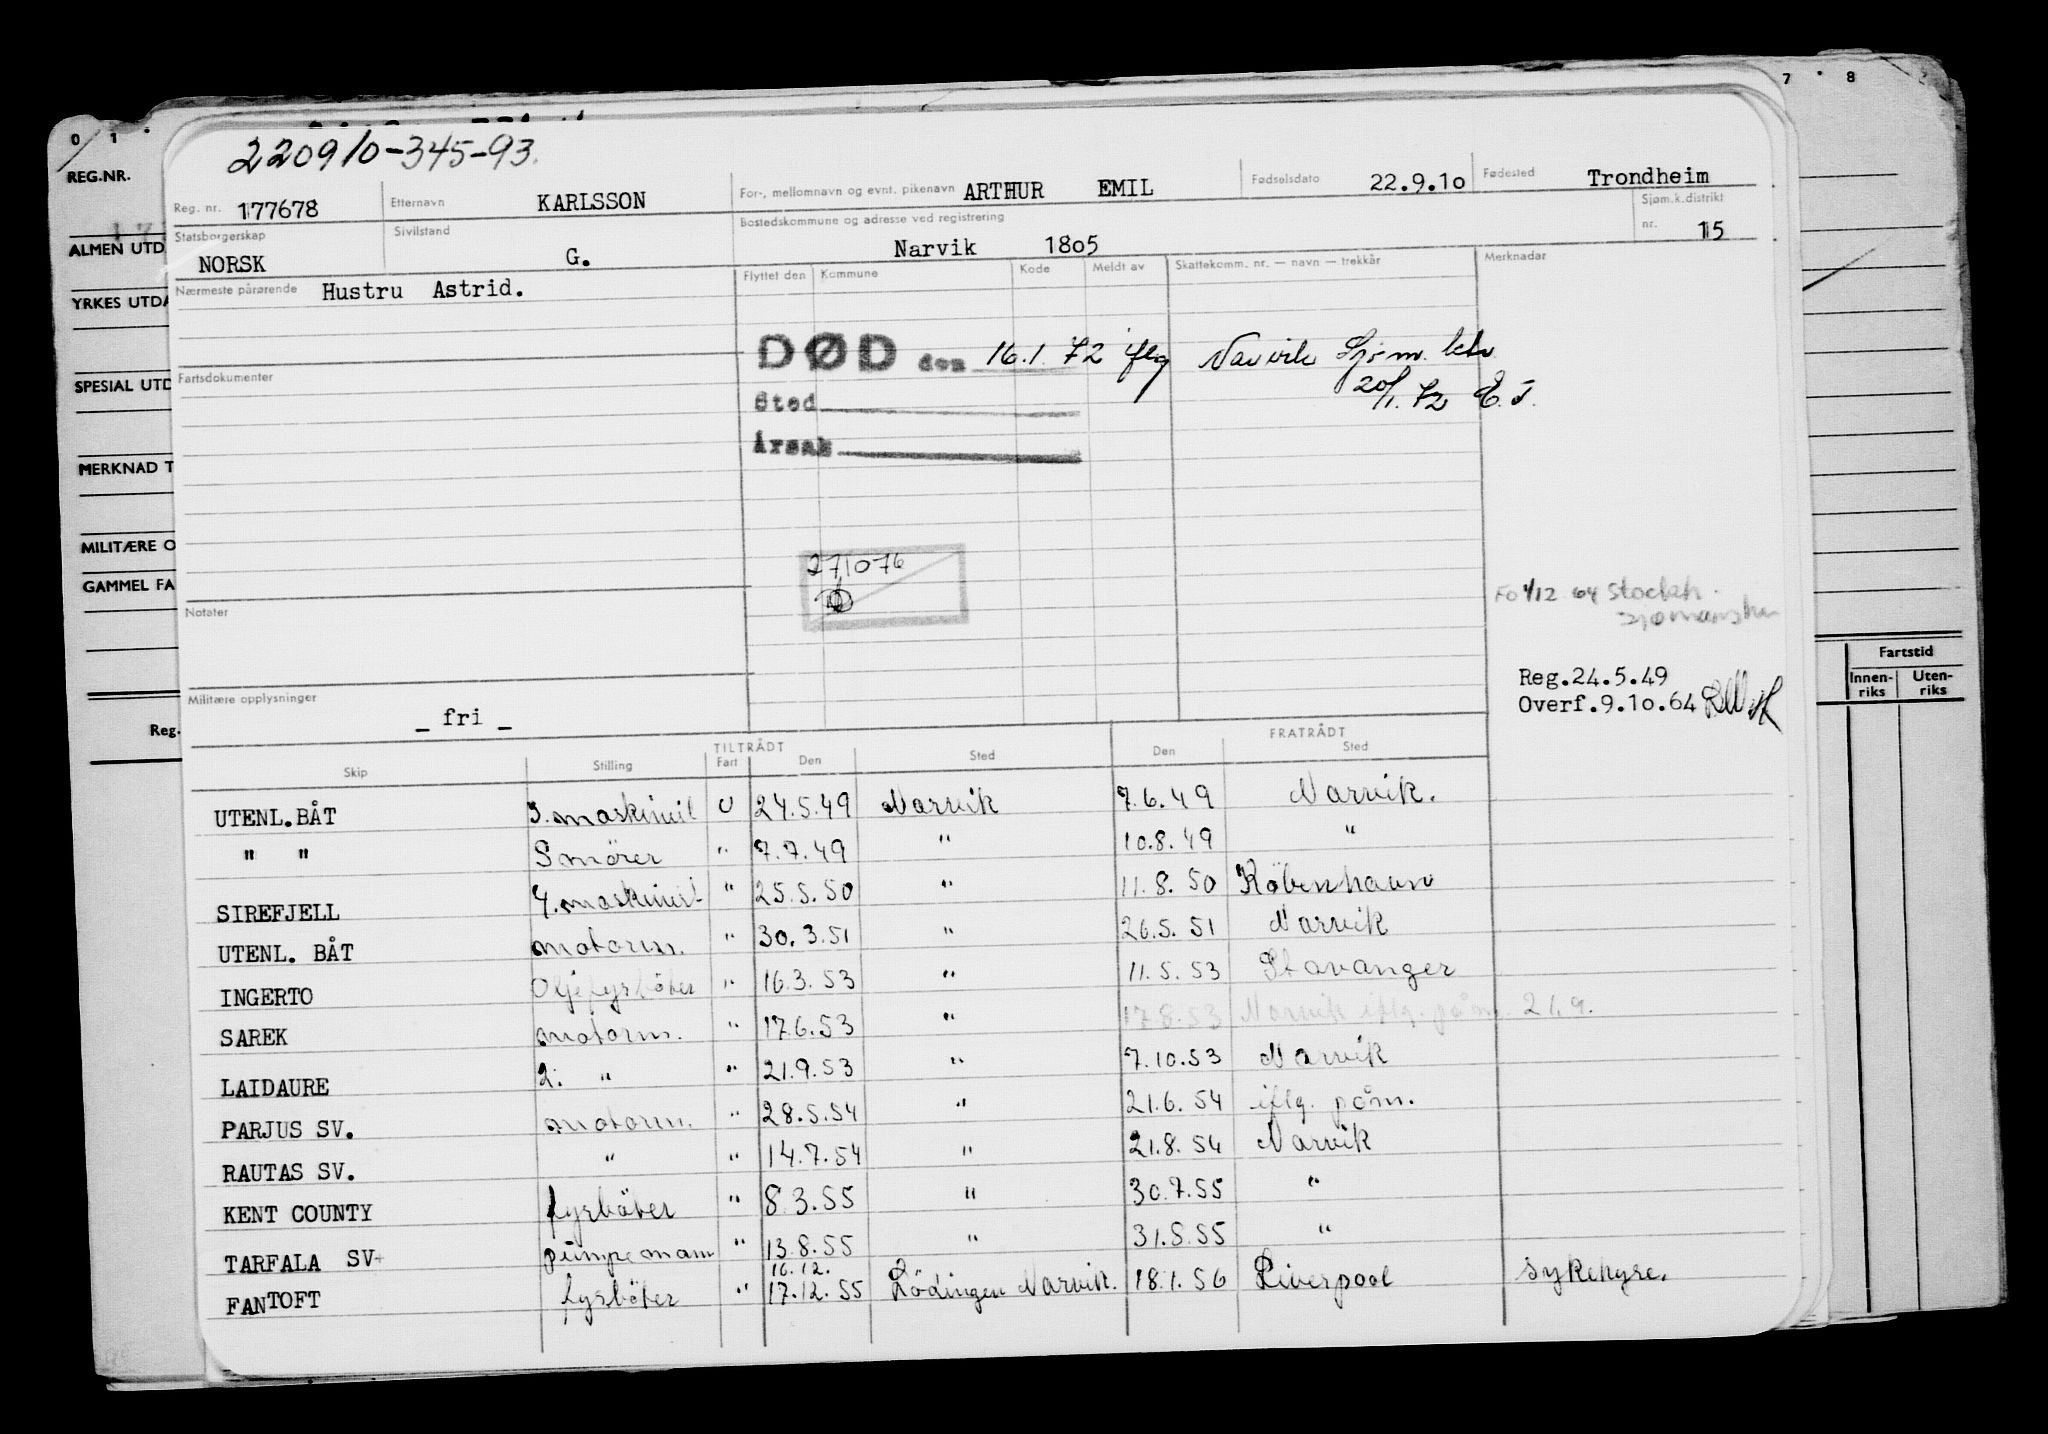 0 1 7 8
220910-345-93.
REG.NR.
Reg. nr. 177678 Etternavn KARLSSON For-, mellomnavn og evnt. pikenavn ARTHUR EMIL Fødselsdato 22.9.1o Fødested Trondheim
Statsborgerskap NORSK Sivilstand G. Bostedskommune og adresse ved registrering Narvik 18o5 Sjøm.k.distrikt nr. 15
ALMEN UTD
Nærmeste pårørende Hustru Astrid. Flyttet den Kommune Kode Meldt av Skattekomm. nr. — navn — trekkår Merknader
YRKES UTDA
DØD den 16.1.72 iflg Narvik Sjøm.ktr.
20/1.72 E.J.
Fartsdokumenter
SPESIAL UTD
Sted
Årsak
MERKNAD T
MILITÆRE O
GAMMEL FA
271076
Fo 1/12 64 Stockh.
Notater
Fartstid
Innen-riks Uten-riks
Reg.24.5.49
Overf.9.1o.64
Militære opplysninger _ fri _
Reg.
TILTRÅDT FRATRÅDT
Skip Stilling Fart Den Sted Den Sted
UTENL.BÅT 3.maskinist U 24.5.49 Narvik 7.6.49 Narvik.
" " Smörer " 7.7.49 " 10.8.49 "
SIREFJELL 4.maskinist " 25.5.50 " 11.8.50 Köbenhavn
UTENL. BÅT motorm. " 30.3.51 " 26.5.51 Narvik
INGERTO Oljefyrböter " 16.3.53 " 11.5.53 Stavanger
SAREK motorm. " 17.6.53 " 17.8.53 Narvik iflg. påm. 21.9.
LAIDAURE 2. " " 21.9.53 " 7.10.53 Narvik
PARJUS SV. motorm. " 28.5.54 " 21.6.54 iflg. påm.
RAUTAS SV. " " 14.7.54 " 21.8.54 Narvik
KENT COUNTY fyrböter " 8.3.55 " 30.7.55 "
TARFALA SV. pumpemann " 13.8.55 " 31.8.55 "
16.12.
FANTOFT fyrböter " 17.12.55 Lödingen Narvik. 18.1.56 Liverpool sykehyre.